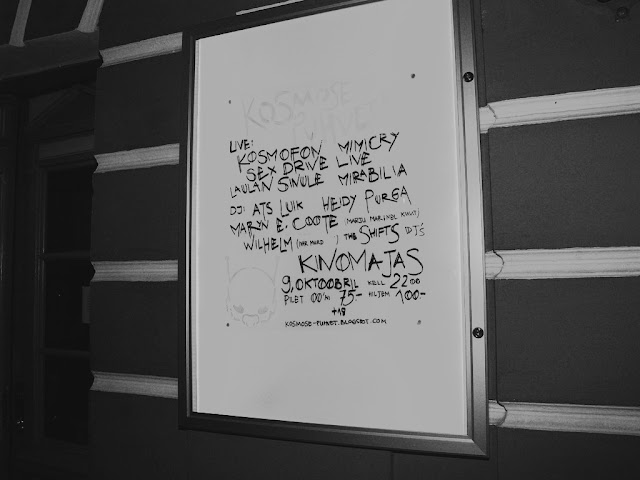 KOSMOSE
PUHVET
LIVE:
KOSMOFON MIMICRY
SEX DRIVE LIVE
LAULAN SINULE MIRABILIA
DJ: ATS LUIK HEIDY PURGA
MARYN E. COOTE (MARJU MARINEL KUUT)
WILHELM THE SHIFTS DJ'S
KINOMAJAS
9, OKTOOBRIL KELL 22:00
PILET 00'NI 75.- HILJEM 100.-
+18
KOSMOSE-PUHVET.BLOGSPOT.COM